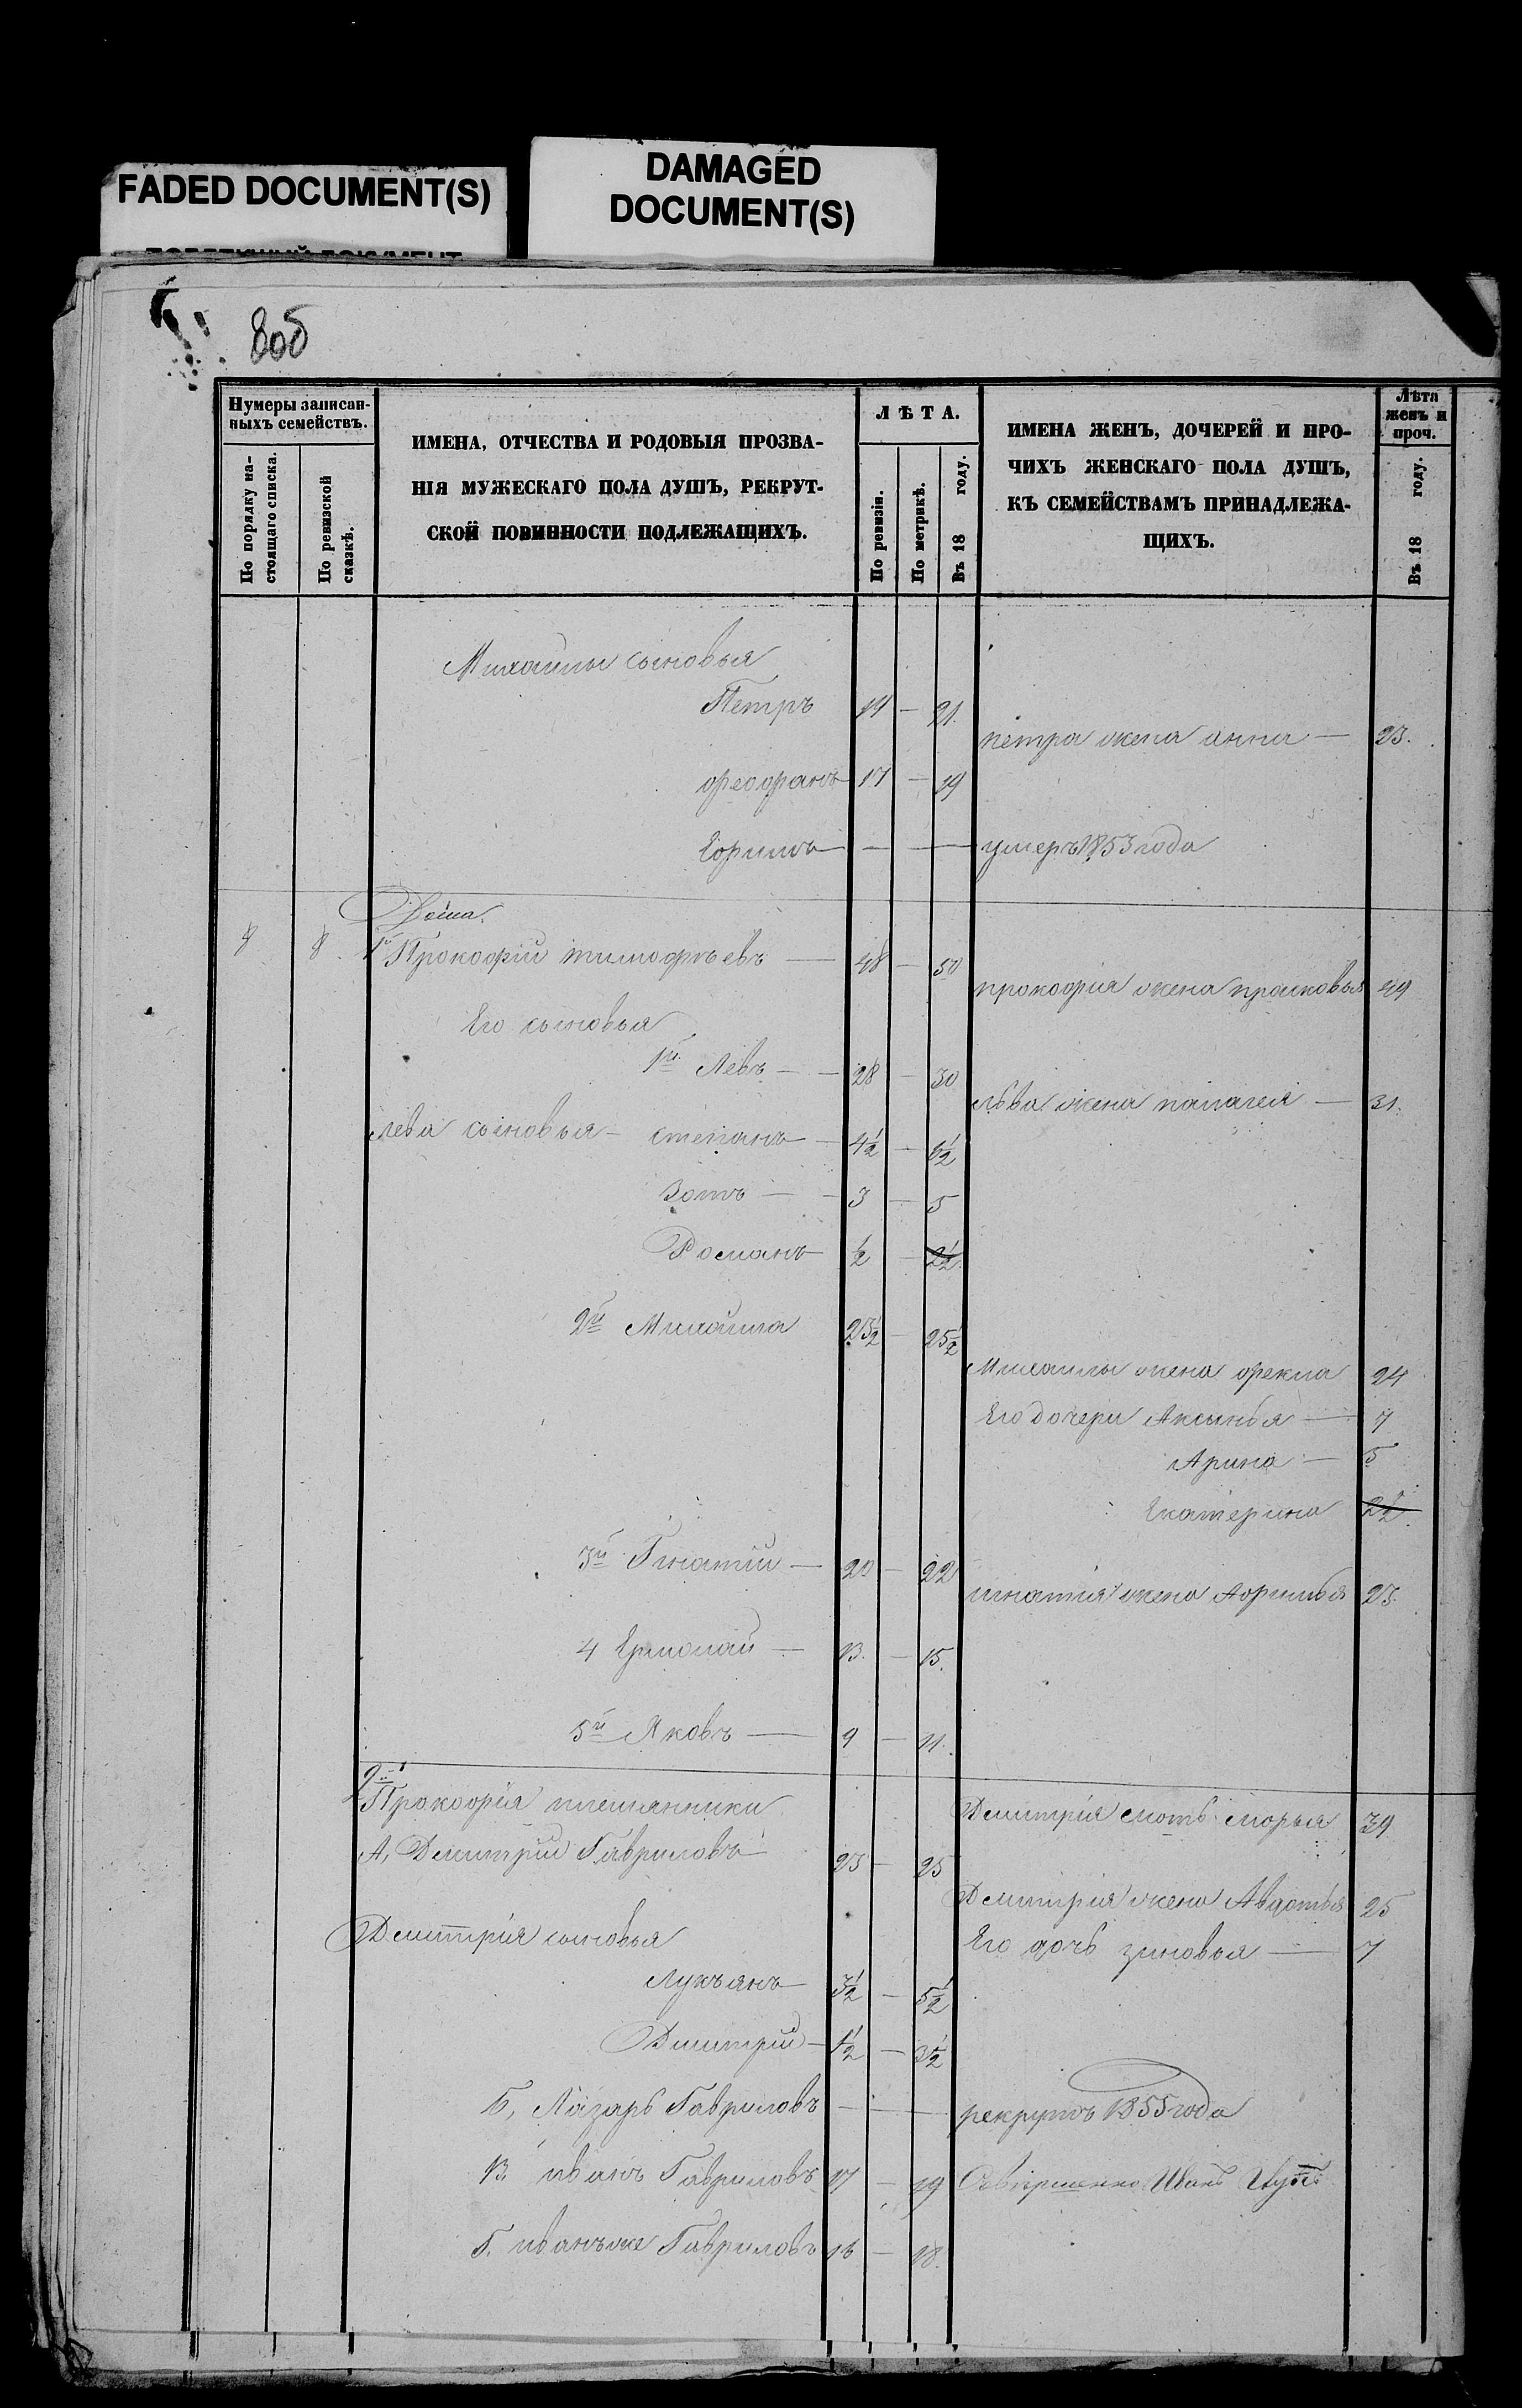 FADED DOCUMENT(S)
DAMAGED
DOCUMENT(S)
8об
Нумеры записан-
ныхъ семействъ.
По порядку на-
стоящаго списка.
По ревизской
сказкѣ.
ИМЕНА, ОТЧЕСТВА И РОДОВЫЯ ПРОЗВА-
НІЯ МУЖЕСКАГО ПОЛА ДУШЪ, РЕКРУТ-
СКОЙ ПОВИННОСТИ ПОДЛЕЖАЩИХЪ.
ЛѢТА.
По ревизіи.
По метрикѣ.
Въ 18 году.
ИМЕНА ЖЕНЪ, ДОЧЕРЕЙ И ПРО-
ЧИХЪ ЖЕНСКАГО ПОЛА ДУШЪ,
КЪ СЕМЕЙСТВАМЪ ПРИНАДЛЕЖА-
ЩИХЪ.
Лѣта
женъ и
проч.
Въ 18 году.
Михайлы сыновья
Петръ 19 — 21.
петра жена анна — 23.
феофанъ 17 — 19
Ефимъ — — — умеръ 1853 года
8 8. 1й Прокофій тимофѣевъ — 48 — 50
прокофія жена прасковья 49
Его сыновья
1й Левъ — 28 — 30
льва жена палагея — 31.
Лева сыновья — степанъ — 4½ — 6½
Зотъ — 3 — 5
Романъ ½ — 2½
2й Михайла 23½ — 25½
Михайлы жена фекла 24
Его дочери Аксинья — 7
Арина — 5
Екатерина 2½
3й Гнатій — 20 — 22
игнатія жена Афимья 23.
4 Ермолай — 13. — 15.
5й Яковъ — 9 — 11.
2й Прокофія племянники
Дмитрія мать марья 39
А, Дмитрій Гавриловъ 23 — 25
Дмитрія жена Авдотья 25
Дмитрія сыновья
Его дочь зиновья — 7
Лукъянъ 3½ — 5½
Дмитрій — 1½ — 3½
Б, Лазарь Гавриловъ — — рекрутъ 1855 года
В. иванъ Гавриловъ 17 — 19 Иванъ
Г. иванъ же Гавриловъ 16 — 18.